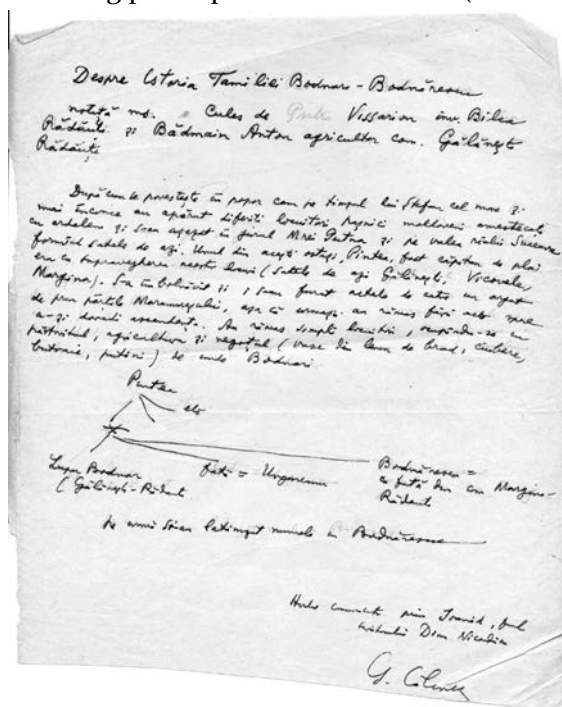 Despre Istoria Familiei Bodnar - Bodnărescu
notată Cules de Vissarion înv. Bilca
Rădăuți și Bădmain Anton agricultor com. Gălănești
Rădăuți
După cum se povestește în popor cam pe timpul lui Ștefan cel mare și
mai încoace au apărut diferiți locuitori pașnici moldoveni amestecați
cu ardeleni și s-au așezat în jurul Mrei Putna și pe valea rîului Suceava
formînd satele de azi. Unul din acești ostași, Pintea, fost căpitan de plai
era cu supravegherea acestor (satele de azi Gălănești, Vicovele,
Margina). S-a îmbolnăvit și i s-au furat actele de către un argat
de prin părțile Maramureșului, așa că urmașii au rămas fără acte spre
a-și dovedi ascendența. Au rămas simpli locuitori, ocupîndu-se cu
păstoritul, agricultura și negoțul (vase din lemn de brad, ciubere,
putini) de unde Bodnari.
Pintea
etc
Lupu Bodnar
(Gălănești-Rădăuți
fată = Ungureanu
Bodnărescu =
cu fată din com Margina-
Rădăuți
pe urmă s-au numele în Bodnărescu
comunicate prin fiul
Dim Nicodim
G. Călinescu